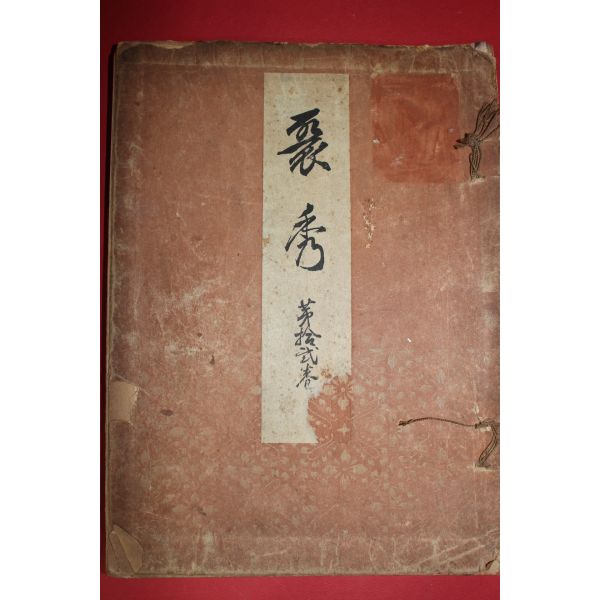 聚秀 第拾弐巻